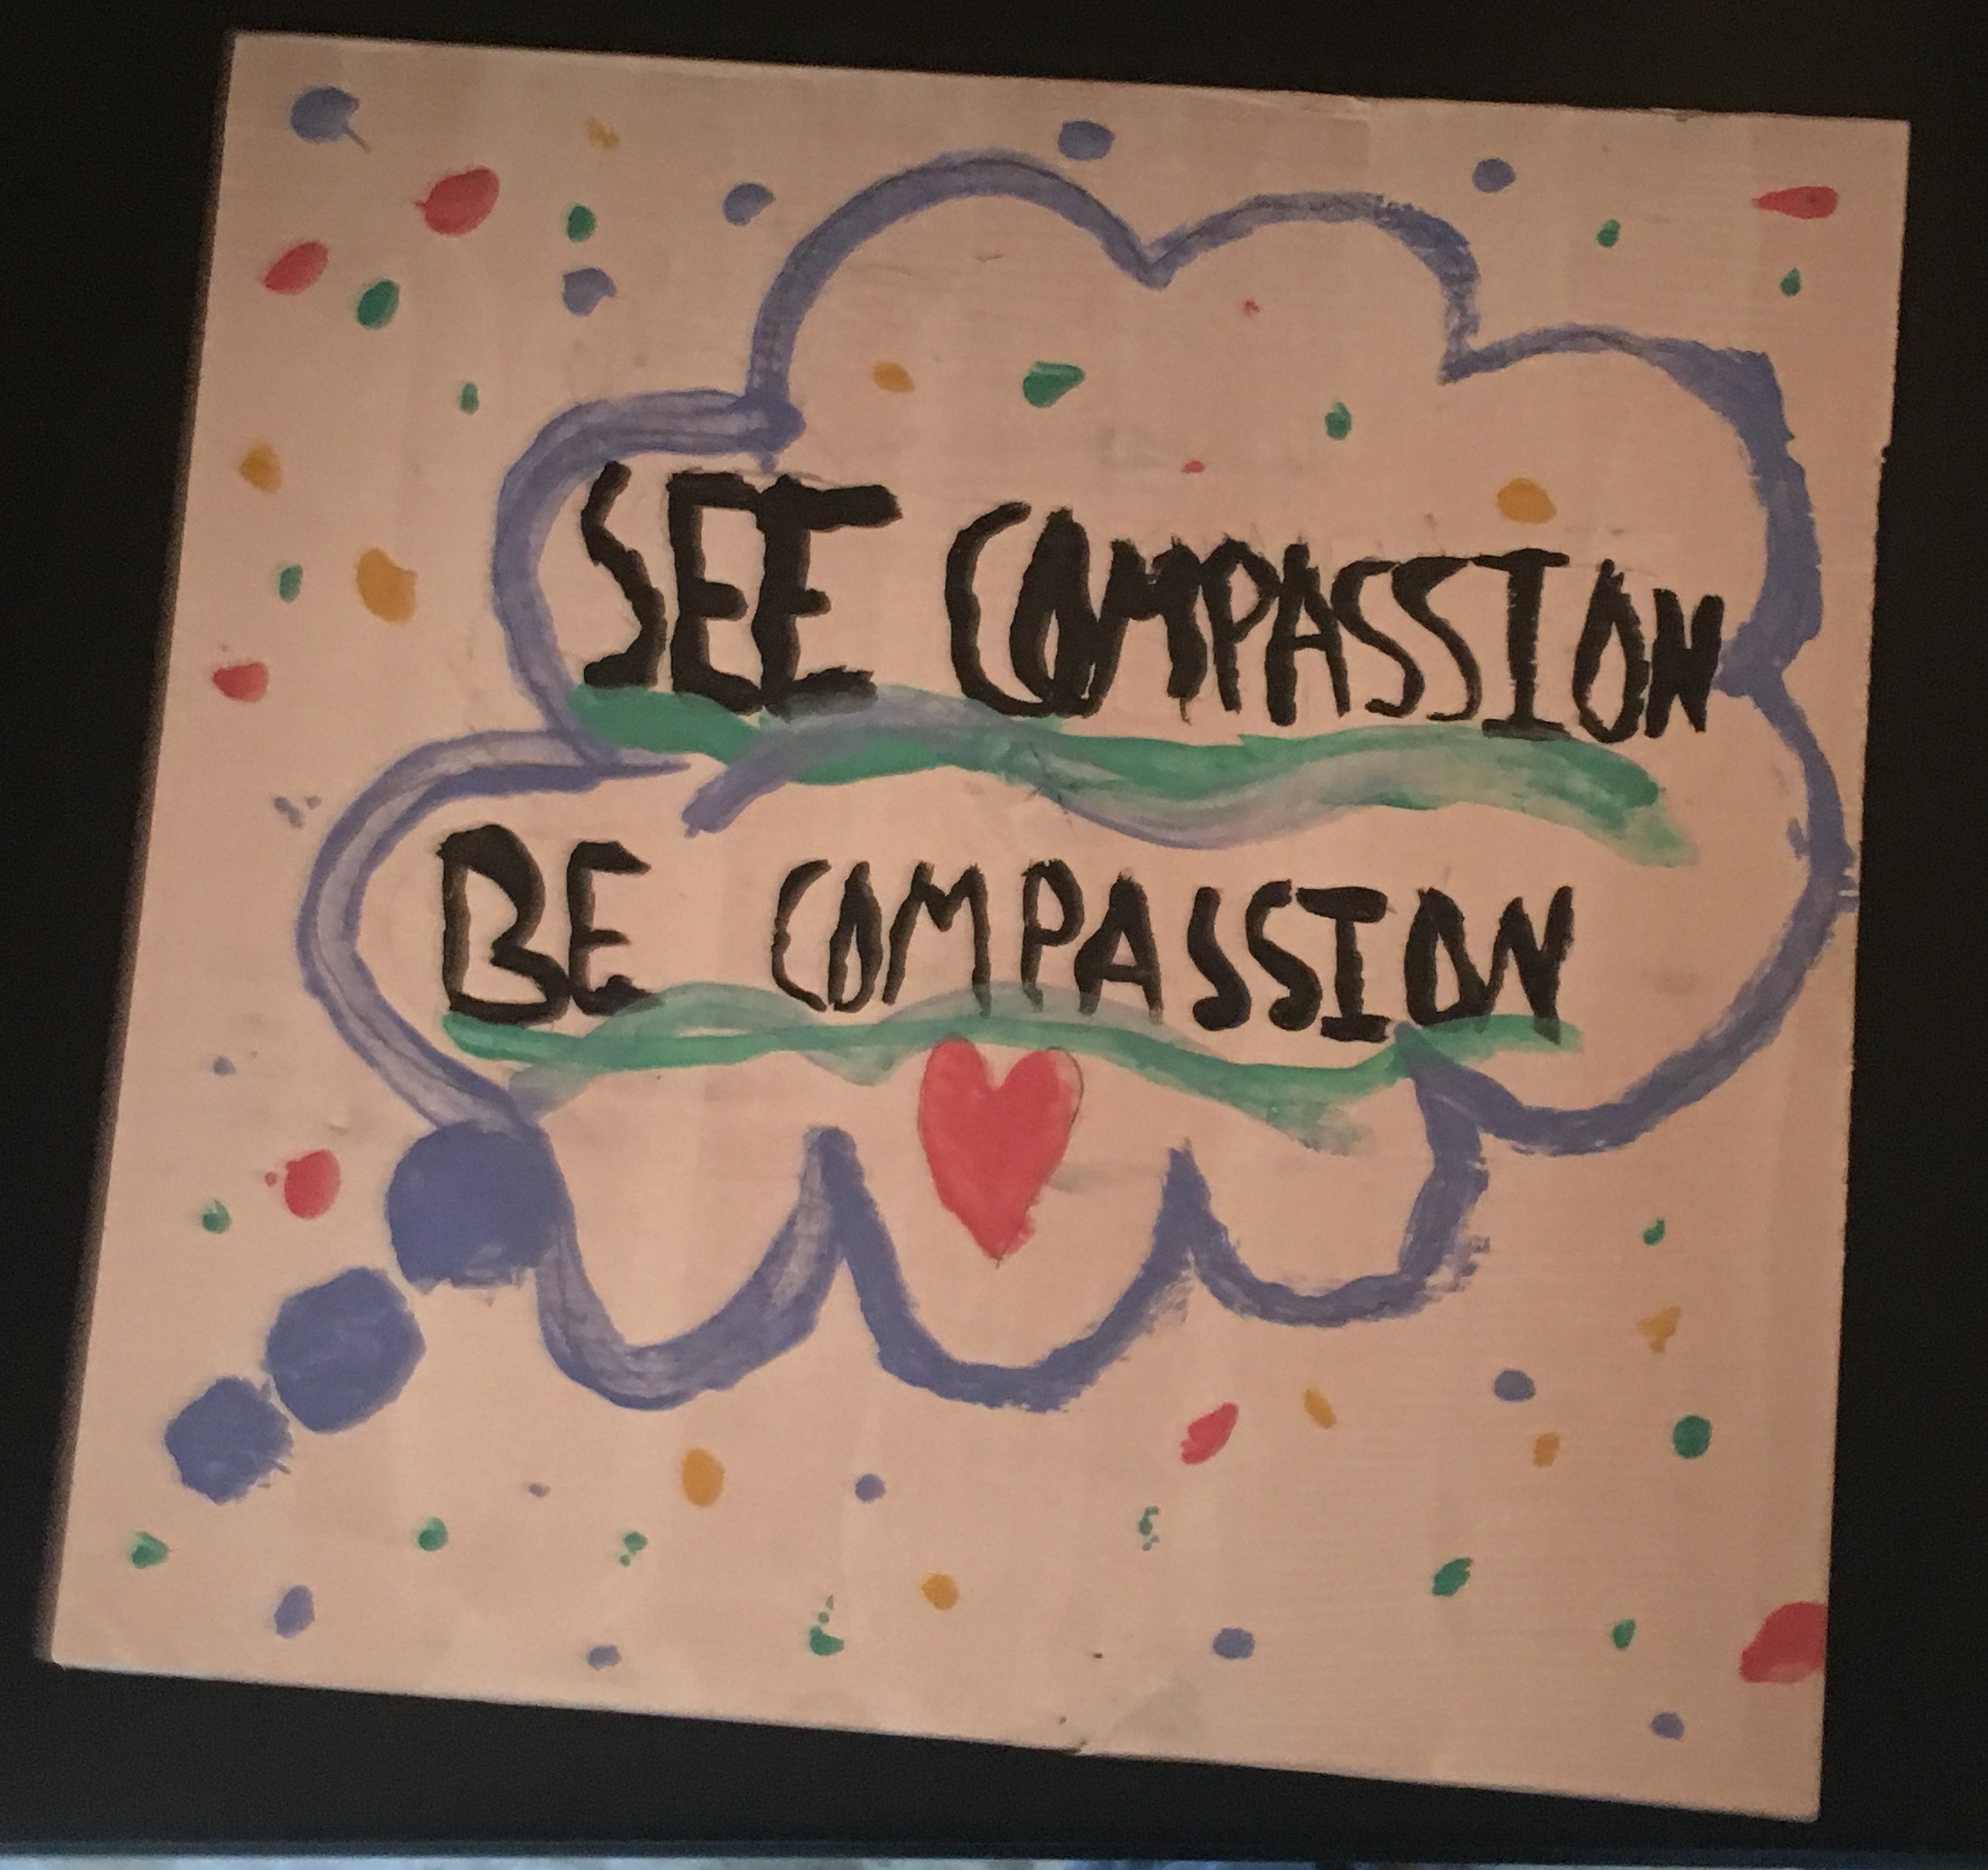 SEE COMPASSION
BE COMPASSION